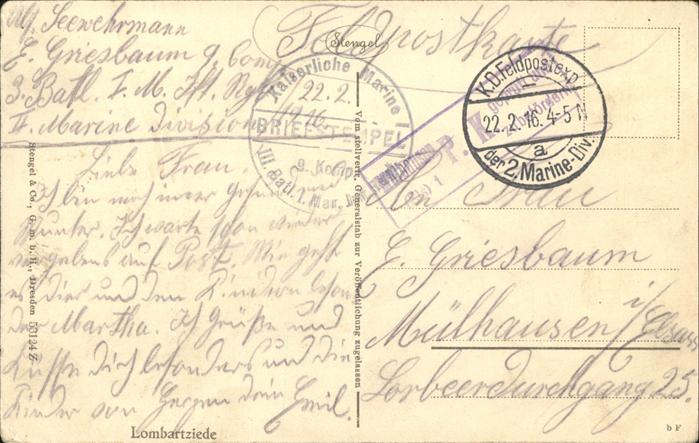 Abs. Seewehrmann
E. Griesbaum 9. Comp.
3. Batl. I. M. Ift. Rgt.
II. Marine Division
22.2.
1916.
Feldpostkarte
Stengel
Kaiserliche Marine
BRIEFSTEMPEL
9. Komp.
III Batl. I. Mar.
P. K.
geprüft und
zu befördern
Mülhausen
K.D. Feldpostexp.
22.2.16. 4-5 N
a
der 2. Marine-Div.
Liebe Frau.
Ich bin noch immer gesund und
munter. Ich warte schon wieder
vergebens auf Post. Wie geht
es dir und den Kindern beson
der Martha. Ich Grüße und
Küsse Dich besonders und die
Kinder von Herzen dein Emil.
Frau
E. Griesbaum
Mülhausen i/Elsass
Lorbeerdurchgang 25.
Vom stellvertr. Generalstab zur Veröffentlichung zugelassen
Stengel & Co., G. m. b. H., Dresden
Lombartziede
b F